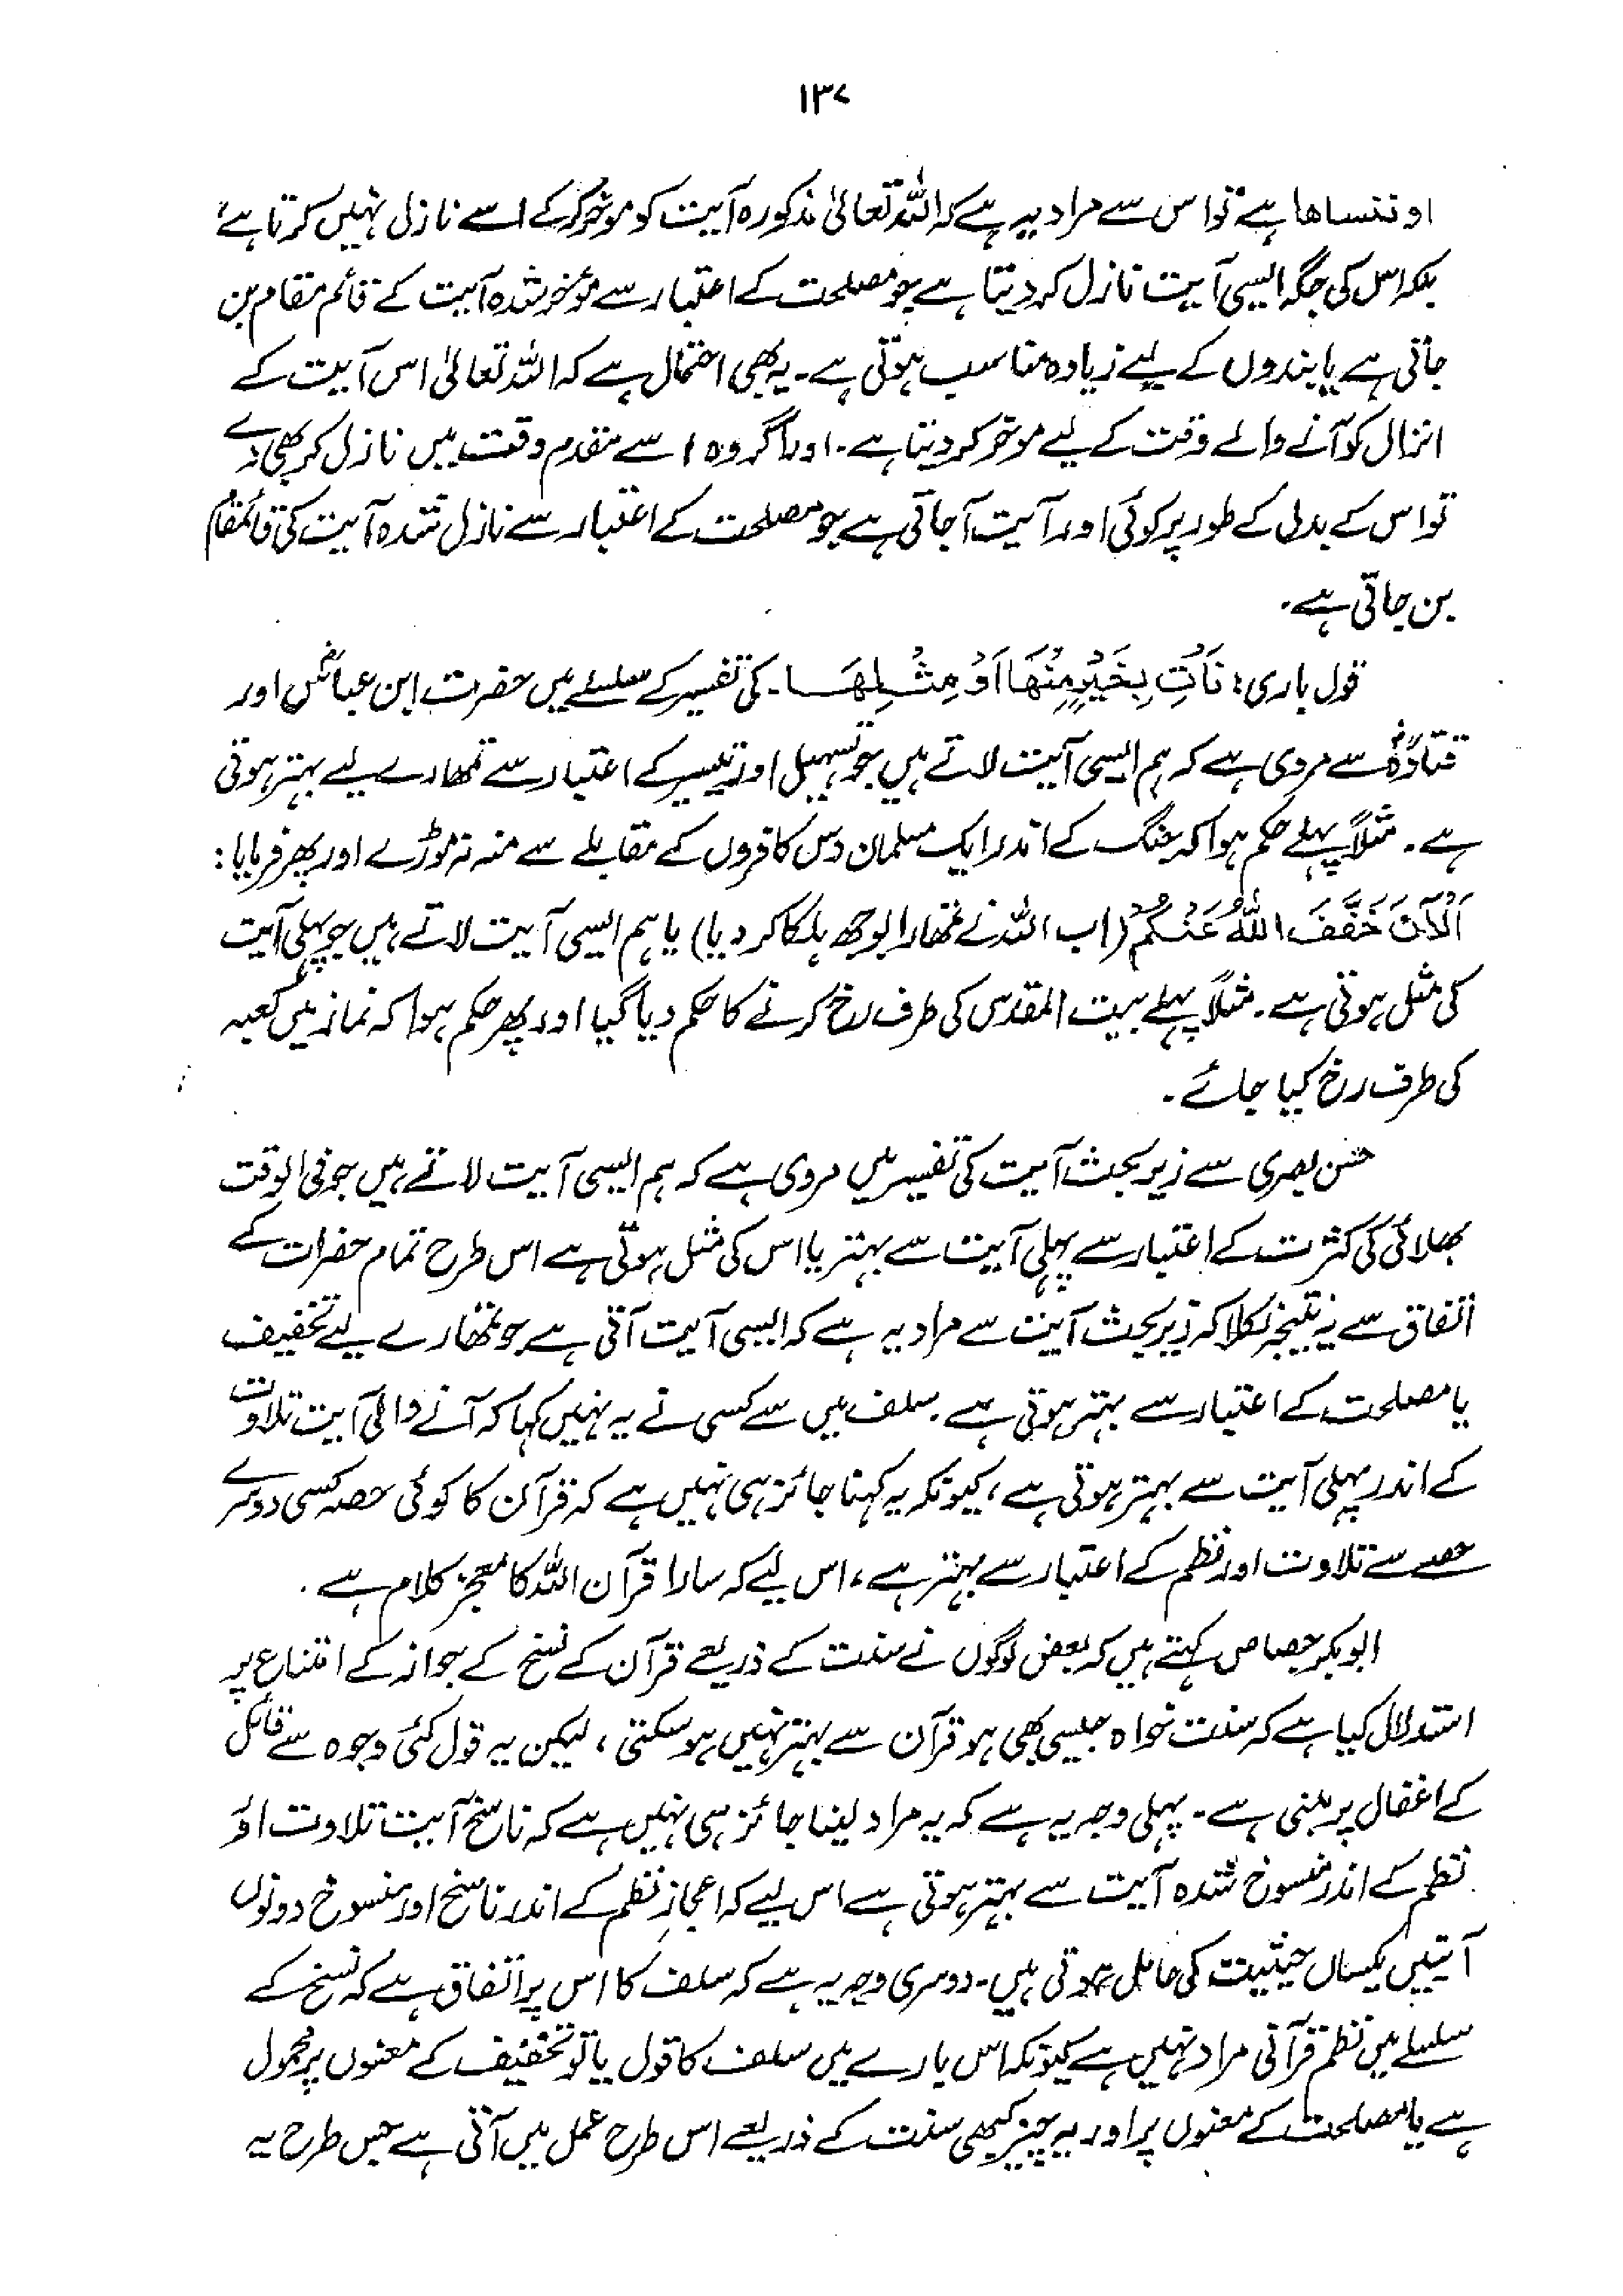 ۱۳۷
او ننساها ہے تو اس سے مراد یہ ہے کہ اللہ تعالیٰ مذکورہ آیت کو موخر کرکے اسے نازل نہیں کرتا ہے
بلکہ اس کی جگہ ایسی آیت نازل کر دیتا ہے جو مصلحت کے اعتبار سے مؤخر شدہ آیت کے قائم مقام بن
جاتی ہے یا بندوں کے لیے زیادہ مناسب ہوتی ہے۔ یہ بھی احتمال ہے کہ اللہ تعالیٰ اس آیت کے
انزال کو آنے والے وقت کے لیے موخر کر دیتا ہے۔ اور اگر وہ اسے متقدم وقت میں نازل کر بھی دے
تو اس کے بدل کے طور پر کوئی اور آیت آ جاتی ہے جو مصلحت کے اعتبار سے نازل شدہ آیت کی قائمقام
بن جاتی ہے۔
قول باری: نَأْتِ بِخَيْرٍ مِنْهَا أَوْ مِثْلِهَا۔ کی تفسیر کے سلسلے میں حضرت ابن عباسؓ اور
قتادہؓ سے مروی ہے کہ ہم ایسی آیت لاتے ہیں جو تسہیل اور تیسیر کے اعتبار سے تمھارے لیے بہتر ہوتی
ہے۔ مثلاً پہلے حکم ہوا کہ جنگ کے اندر ایک مسلمان دس کافروں کے مقابلے سے منہ نہ موڑے اور پھر فرمایا:
اَلْاٰنَ خَفَّفَ اللّٰهُ عَنْكُمْ (اب اللہ نے تمھارا بوجھ ہلکا کر دیا) یا ہم ایسی آیت لاتے ہیں جو پہلی آیت
کی مثل ہوتی ہے۔ مثلاً پہلے بیت المقدس کی طرف رخ کرنے کا حکم دیا گیا اور پھر حکم ہوا کہ نماز میں کعبہ
کی طرف رخ کیا جائے۔
حسن بصری سے زیر بحث آیت کی تفسیر میں مروی ہے کہ ہم ایسی آیت لاتے ہیں جو فی الوقت
بھلائی کی کثرت کے اعتبار سے پہلی آیت سے بہتر یا اس کی مثل ہوتی ہے اس طرح تمام حضرات کے
اتفاق سے یہ نتیجہ نکلا کہ زیر بحث آیت سے مراد یہ ہے کہ ایسی آیت آتی ہے جو تمھارے لیے تخفیف
یا مصلحت کے اعتبار سے بہتر ہوتی ہے۔ سلف میں سے کسی نے یہ نہیں کہا کہ آنے والی آیت تلاوت
کے اندر پہلی آیت سے بہتر ہوتی ہے، کیونکہ یہ کہنا جائز ہی نہیں ہے کہ قرآن کا کوئی حصہ کسی دوسرے
حصے سے تلاوت اور نظم کے اعتبار سے بہتر ہے، اس لیے کہ سارا قرآن اللہ کا معجز کلام ہے۔
ابوبکر جصاص کہتے ہیں کہ بعض لوگوں نے سنت کے ذریعے قرآن کے نسخ کے جواز کے امتناع پر
استدلال کیا ہے کہ سنت خواہ جیسی بھی ہو قرآن سے بہتر نہیں ہو سکتی، لیکن یہ قول کئی وجوہ سے قائل
کے اغفال پر مبنی ہے۔ پہلی وجہ یہ ہے کہ یہ مراد لینا جائز ہی نہیں ہے کہ ناسخ آیت تلاوت اور
نظم کے اندر منسوخ شدہ آیت سے بہتر ہوتی ہے اس لیے کہ اعجازِ نظم کے اندر ناسخ اور منسوخ دونوں
آیتیں یکساں حیثیت کی حامل ہوتی ہیں۔ دوسری وجہ یہ ہے کہ سلف کا اس پر اتفاق ہے کہ نسخ کے
سلسلے میں نظم قرآنی مراد نہیں ہے کیونکہ اس بارے میں سلف کا قول یا تو تخفیف کے معنوں پر محمول
ہے یا مصلحت کے معنوں پر اور یہ چیز کبھی سنت کے ذریعے اس طرح عمل میں آتی ہے جس طرح یہ